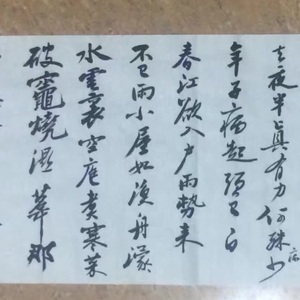 去夜半眞有力何殊少
病
年子病起頭已白
春江欲入戶雨勢來
不已雨小屋如漁舟濛
水雲裏空庖煮寒菜
破竈燒濕葦那